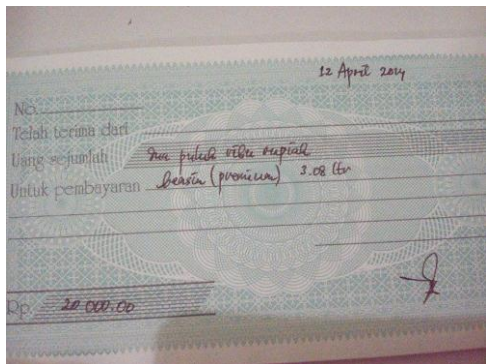 12 April 2014
No.
Telah terima dari
Uang sejumlah dua puluh ribu rupiah
Untuk pembayaran bensin (premium) 3.08 ltr
Rp. 20 000.00